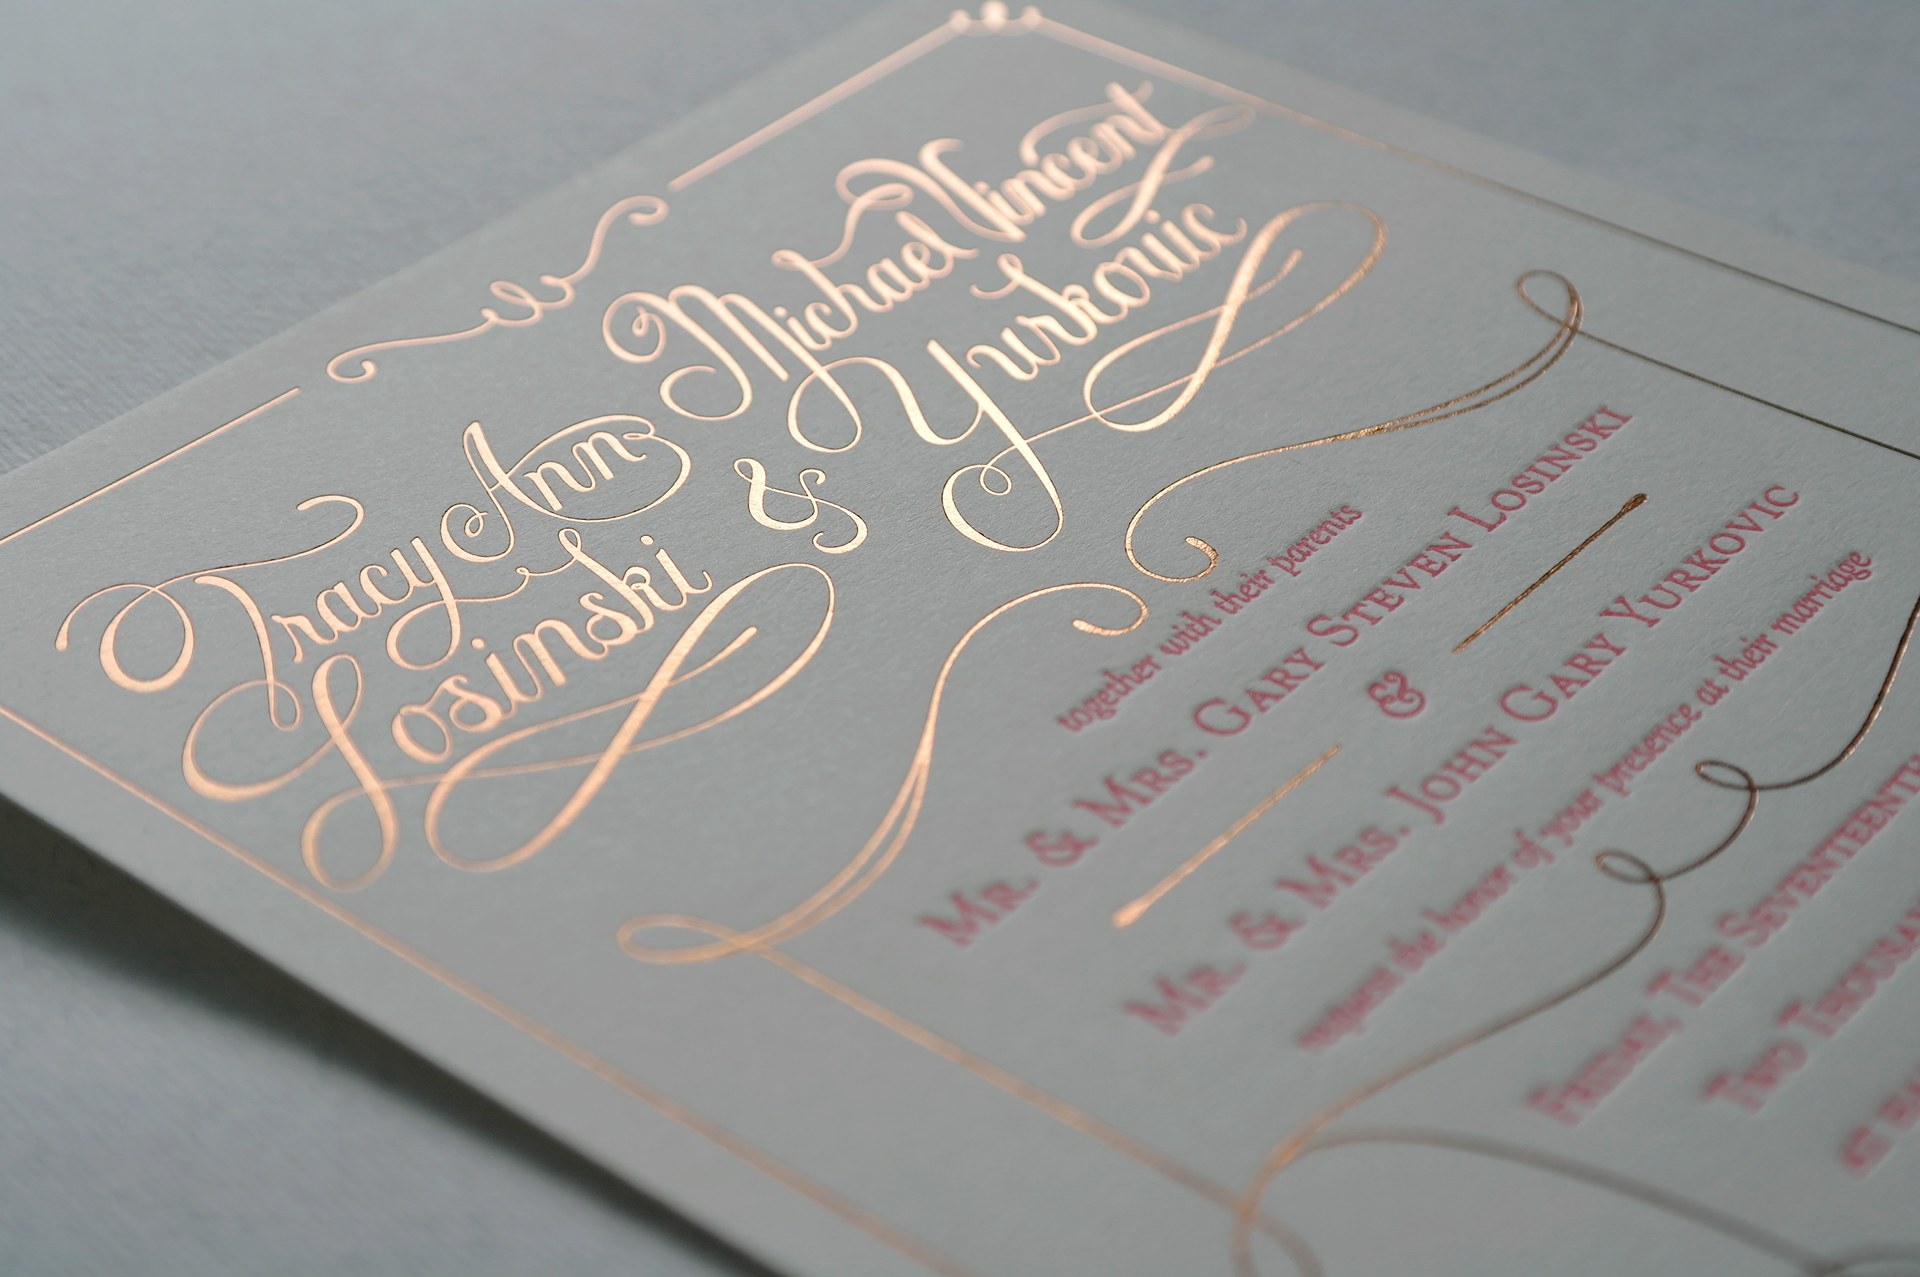 Tracy Ann
Losinski
&
Michael Vincent
Yurkovic
together with their parents
Mr. & Mrs. Gary Steven Losinski
&
Mr. & Mrs. John Gary Yurkovic
request the honor of your presence at their marriage
Friday, The Seventeenth
Two
at